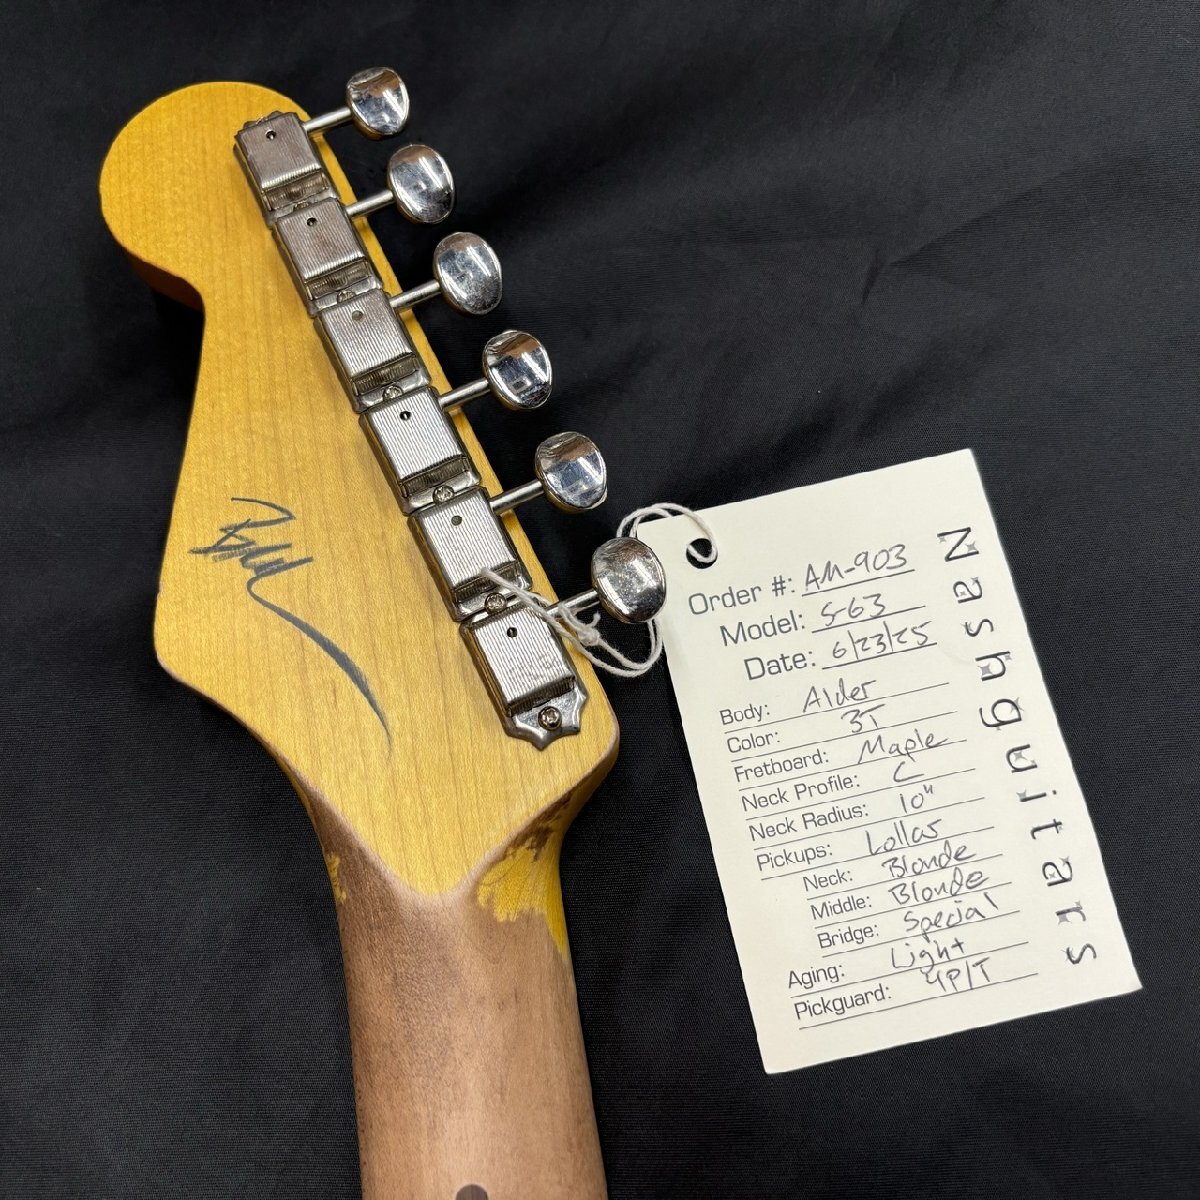 Order #: AM-903
Model: S-63
Date: 6/23/25
Body: Alder
Color: 3T
Fretboard: Maple
Neck Profile: C
Neck Radius: 10"
Pickups: Lollar
Neck: Blonde
Middle: Blonde
Bridge: Special
Aging: Light
Pickguard: 4P/T
Nashguitars